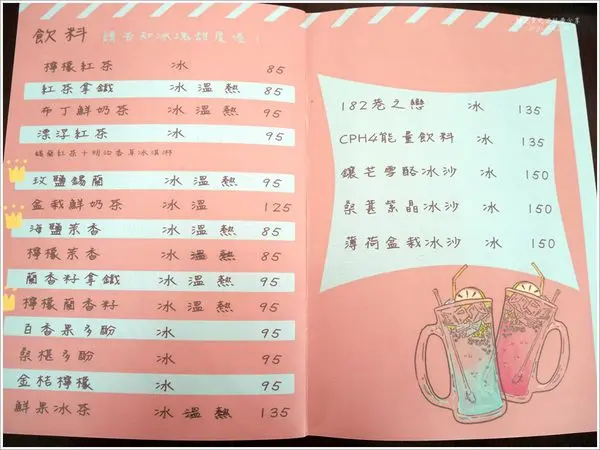 飲料 請告知冰塊甜度喔!
檸檬紅茶 冰 85
紅茶拿鐵 冰 溫 熱 85
布丁鮮奶茶 冰 溫 熱 95
漂浮紅茶 冰 95
錫蘭紅茶+明治香草冰淇淋
玫鹽錫蘭 冰 溫 熱 95
盆栽鮮奶茶 冰 溫 125
海鹽茉香 冰 溫 熱 85
檸檬茉香 冰 85
蘭香籽拿鐵 冰 溫 熱 95
檸檬蘭香籽 冰 溫 熱 95
百香果多酚 冰 95
桑椹多酚 冰 95
金桔檸檬 冰 95
鮮果冰茶 冰 溫 熱 135
182巷之戀 冰 135
CPH4能量飲料 冰 135
鑲芒雪酪冰沙 冰 150
桑葚紫晶冰沙 冰 150
薄荷盆栽冰沙 冰 150